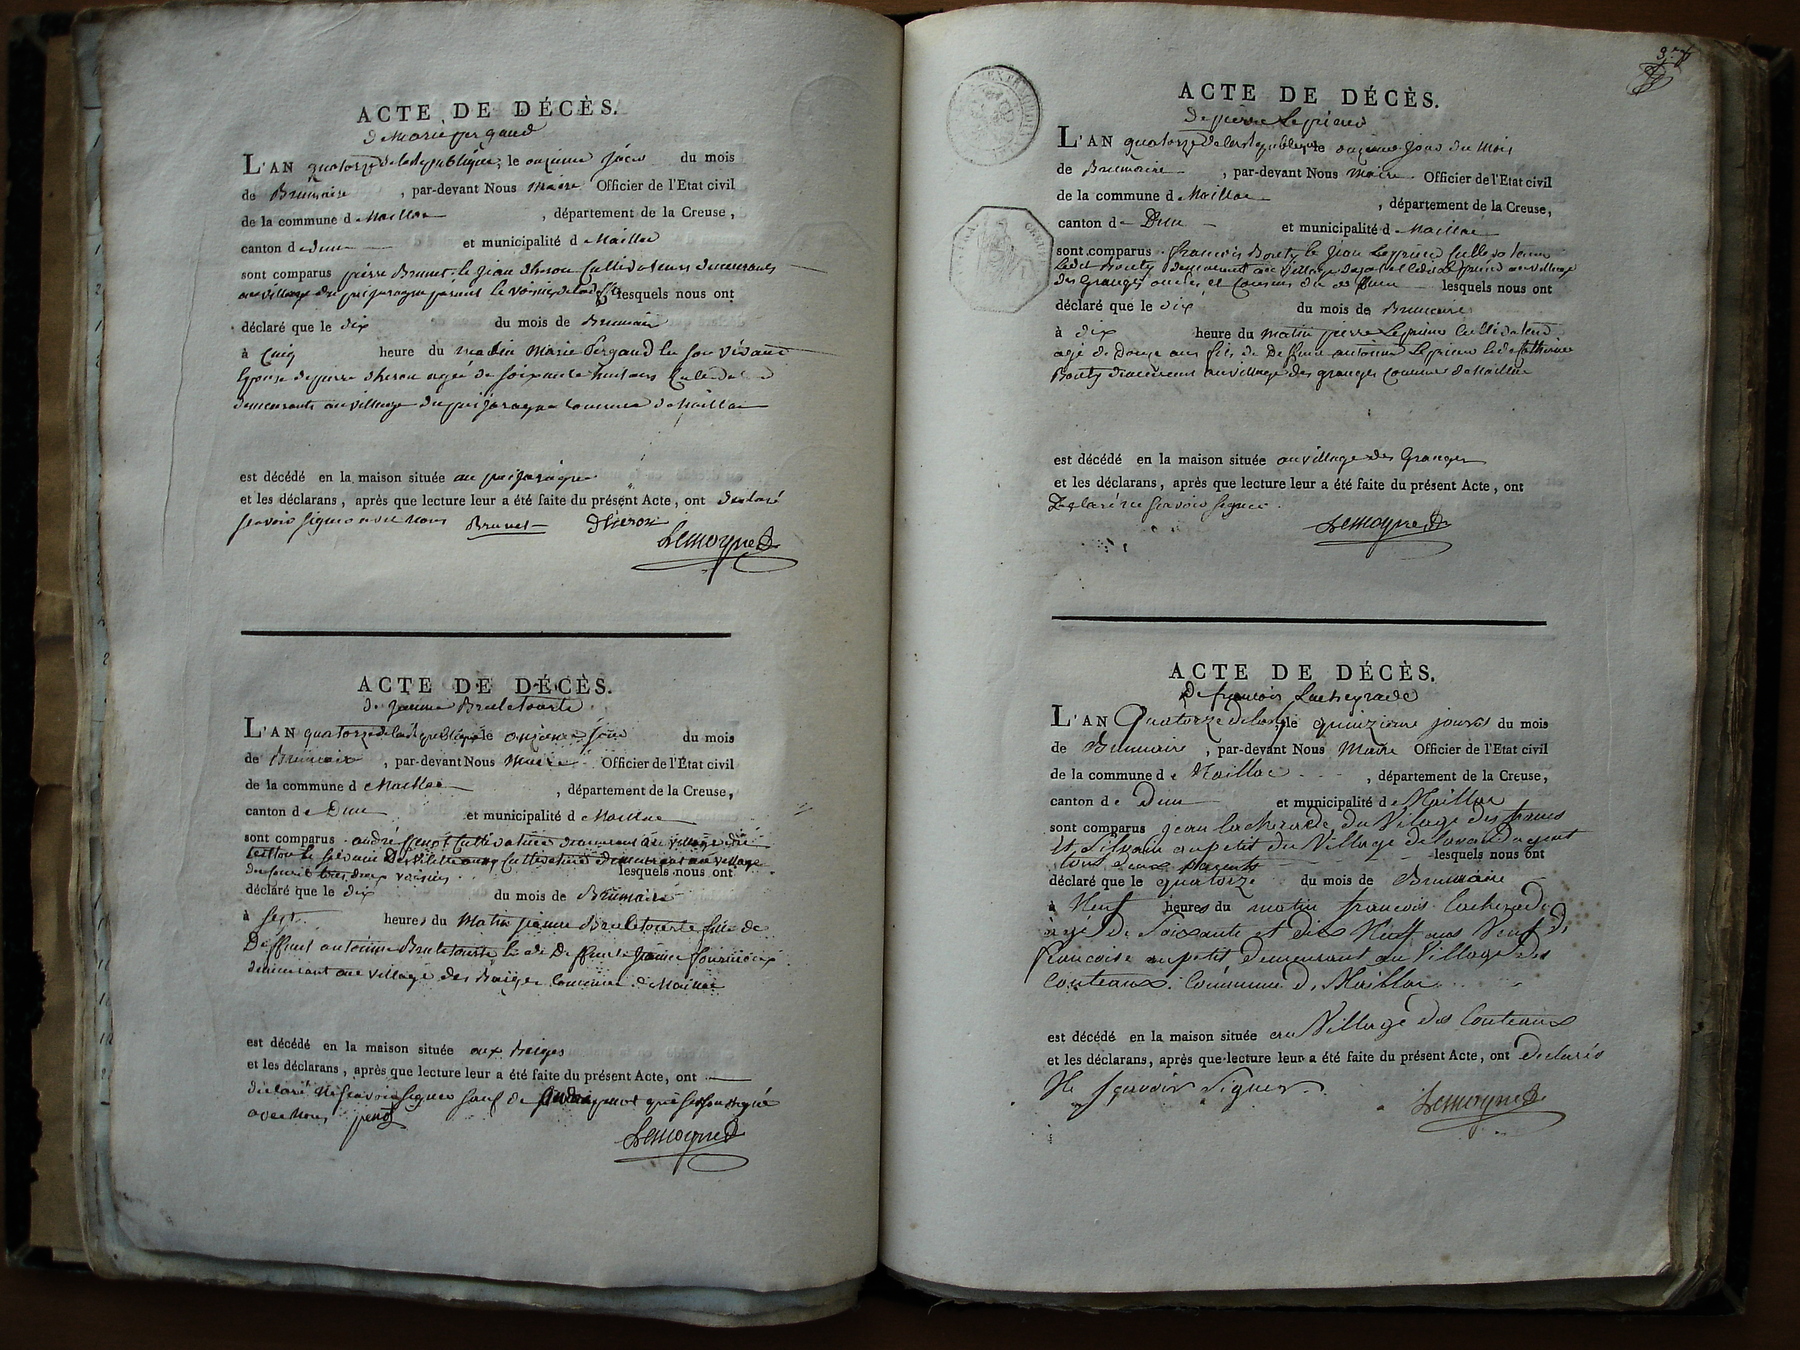 ACTE DE DÉCÈS.
de Marie pergaud
L'AN quatorze de la Republique, le onzieme jour du mois
de Brumaire , par-devant Nous Maire Officier de l'Etat civil
de la commune de Maillac , département de la Creuse,
canton de Dun et municipalité de Maillac
sont comparus pierre Brunet le jean dheron Cultivateurs demeurants
au village du puijaragne lesquels nous ont
déclaré que le dix du mois de Brumaire
à Cinq heure du matin Marie Pergaud
Epouse de pierre dheron agée de soixante huit ans
demeurante au village du puijaragne Commune de Maillac
est décédé en la maison située au puijaragne
et les déclarans, après que lecture leur a été faite du présent Acte, ont declaré
scavoir signer avec nous Brunet dheron
Lemoyne
ACTE DE DÉCÈS.
de jeanne Bruletourte
L'AN quatorze de la Republique le onzieme jour du mois
de Brumaire , par-devant Nous Maire Officier de l'État civil
de la commune de Maillac , département de la Creuse,
canton de Dun et municipalité de Maillac
sont comparus andré penot Cultivateur demeurant au village
Cultivateur demeurant au village
tous deux voisins lesquels nous ont
déclaré que le dix du mois de Brumaire
à sept heures du Matin jeanne Bruletourte fille de
Deffunt antoinne Bruletourte et de Deffunte jeanne
demeurant au village des Baiges Commune de Maillac
est décédé en la maison située aux Baiges
et les déclarans, après que lecture leur a été faite du présent Acte, ont
declaré ne scavoir signer sauf
avec nous penot
Lemoyne
37
ACTE DE DÉCÈS.
de pierre Leprieur
L'AN quatorze de la Republique le onzieme jour du mois
de Brumaire , par-devant Nous Maire Officier de l'Etat civil
de la commune de Maillac , département de la Creuse,
canton de Dun et municipalité de Maillac
sont comparus françois Bouty le jean Leprieur Cultivateurs
Ledit Bouty demeurant au village au village
des Granges oncles et Cousins lesquels nous ont
déclaré que le dix du mois de Brumaire
à dix heure du matin pierre Leprieur Cultivateur
agé de Douze ans fils de Deffunt antoinne Leprieur et de Catherine
Bouty demeurant au village des granges Commune de Maillac
est décédé en la maison située au village des Granges
et les déclarans, après que lecture leur a été faite du présent Acte, ont
Declaré ne scavoir signer.
Lemoyne
ACTE DE DÉCÈS.
De françois Lacheyrade
L'AN Quatorze le quinzieme jour du mois
de Brumaire , par-devant Nous Maire Officier de l'Etat civil
de la commune de Maillac , département de la Creuse,
canton de Dun et municipalité de Maillac
sont comparus jean Lacherade du Village des
Et Silvain aupetit du Village de
tous deux parents lesquels nous ont
déclaré que le quatorze du mois de Brumaire
à Neuf heures du matin françois Lacherade
agé De Soixante et dix Neuf ans Veuf de
françoise aupetit Demeurant au Village des
Couteaux. Commune de Maillac
est décédé en la maison située au Village des Couteaux
et les déclarans, après que lecture leur a été faite du présent Acte, ont declarés
Ne scavoir Signer.
Lemoyne